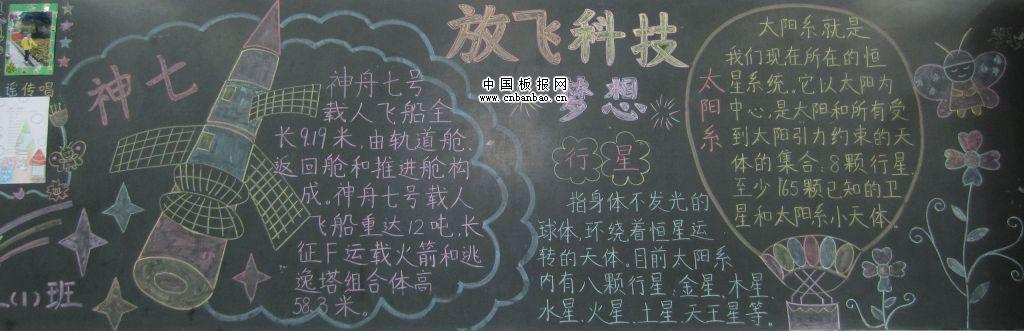 遥传唱
(1)班
神七
神舟七号
载人飞船全
长9.19米,由轨道舱、
返回舱和推进舱构
成。神舟七号载人
飞船重达12吨,长
征F运载火箭和逃
逸塔组合体高
58.3米。
放飞科技
梦想
中国板报网
www.cnbanbao.cn
行星
指身体不发光的
球体,环绕着恒星运
转的天体。目前太阳系
内有八颗行星:金星、木星、
水星、火星、土星、天王星等。
太阳系
太阳系就是
我们现在所在的恒
星系统。它以太阳为
中心,是太阳和所有受
到太阳引力约束的天
体的集合:8颗行星、
至少165颗已知的卫
星和太阳系小天体。